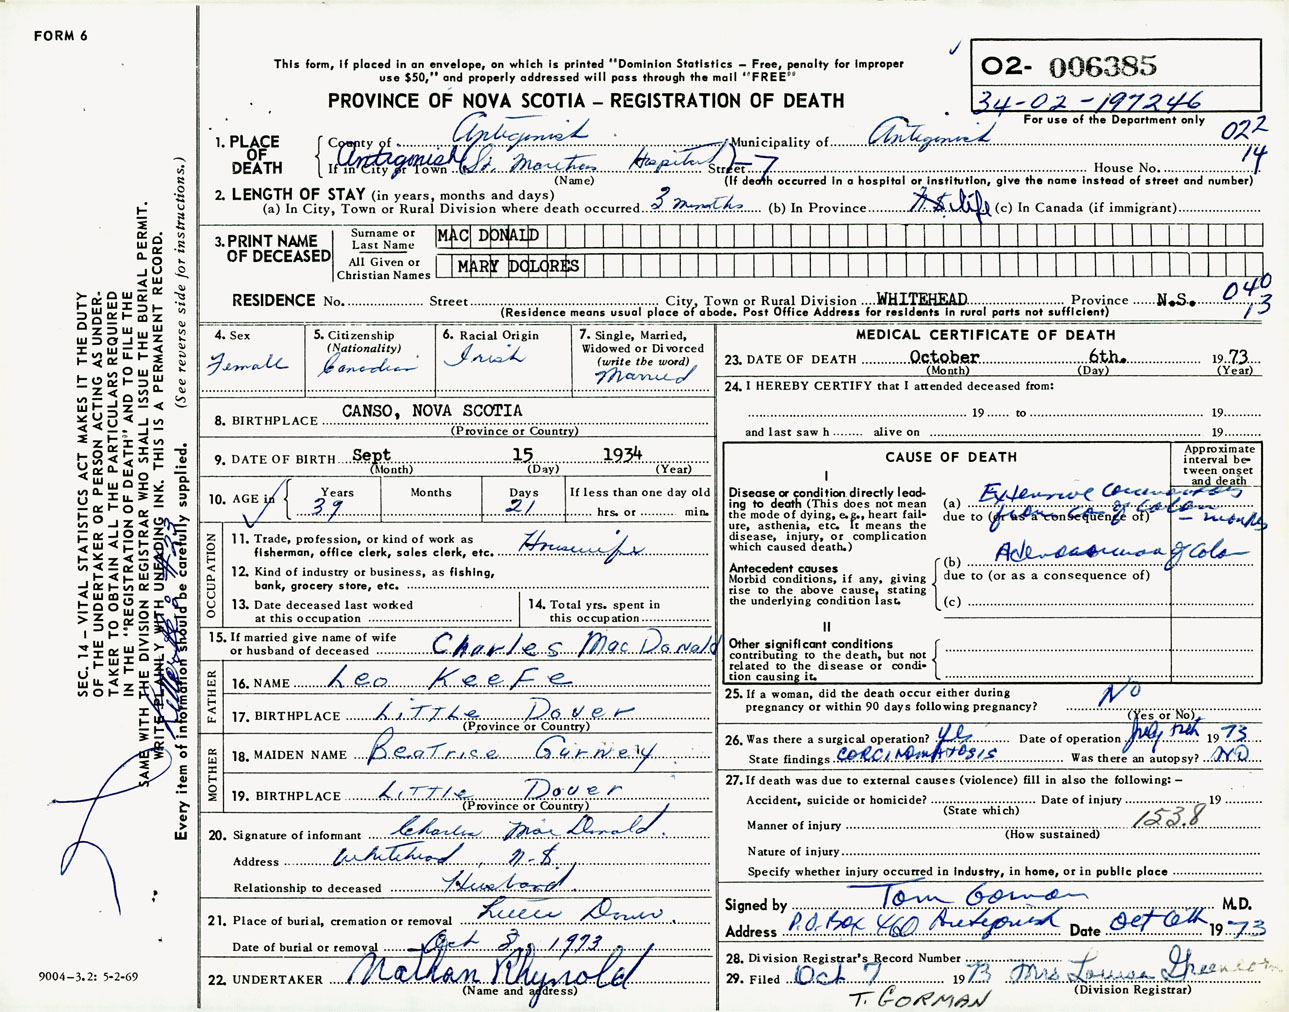 FORM 6
This form, if placed in an envelope, on which is printed "Dominion Statistics – Free, penalty for improper
use $50," and properly addressed will pass through the mail "FREE"
PROVINCE OF NOVA SCOTIA – REGISTRATION OF DEATH
02- 006385
34-02-197246
For use of the Department only
022
14
1. PLACE OF DEATH
County of Antigonish Municipality of Antigonish
If in City or Town Antigonish (St. Marthas Hospital) -7 Street House No.
(Name) (If death occurred in a hospital or institution, give the name instead of street and number)
2. LENGTH OF STAY (in years, months and days)
(a) In City, Town or Rural Division where death occurred 3 months (b) In Province life (c) In Canada (if immigrant)
3. PRINT NAME OF DECEASED
Surname or Last Name MAC DONALD
All Given or Christian Names MARY DOLORES
RESIDENCE No. Street City, Town or Rural Division WHITEHEAD Province N.S. 040
13
(Residence means usual place of abode. Post Office Address for residents in rural parts not sufficient)
4. Sex
Female
5. Citizenship
(Nationality)
Canadian
6. Racial Origin
Irish
7. Single, Married,
Widowed or Divorced
(write the word)
Married
8. BIRTHPLACE CANSO, NOVA SCOTIA
(Province or Country)
9. DATE OF BIRTH Sept 15 1934
(Month) (Day) (Year)
10. AGE in
Years Months Days If less than one day old
39 21 hrs. or min.
OCCUPATION
11. Trade, profession, or kind of work as
fisherman, office clerk, sales clerk, etc. Housewife
12. Kind of industry or business, as fishing,
bank, grocery store, etc.
13. Date deceased last worked
at this occupation
14. Total yrs. spent in
this occupation
15. If married give name of wife
or husband of deceased Charles MacDonald
FATHER
16. NAME Leo Keefe
17. BIRTHPLACE Little Dover
(Province or Country)
MOTHER
18. MAIDEN NAME Beatrice Gurney
19. BIRTHPLACE Little Dover
(Province or Country)
20. Signature of informant Charles MacDonald.
Address Whitehead, N.S.
Relationship to deceased Husband.
21. Place of burial, cremation or removal Little Dover.
Date of burial or removal Oct 8, 1973
22. UNDERTAKER Nathan Rhynold
(Name and address)
MEDICAL CERTIFICATE OF DEATH
23. DATE OF DEATH October 6th. 1973
(Month) (Day) (Year)
24. I HEREBY CERTIFY that I attended deceased from:
19 to 19
and last saw h alive on 19
CAUSE OF DEATH
Approximate interval between onset and death
I
Disease or condition directly leading to death (This does not mean the mode of dying, e.g., heart failure, asthenia, etc. It means the disease, injury, or complication which caused death.)
(a) Extensive Carcinomatosis
from Ca of Colon - months
due to (or as a consequence of)
Antecedent causes
Morbid conditions, if any, giving rise to the above cause, stating the underlying condition last.
(b) Adenocarcinoma of Colon
due to (or as a consequence of)
(c)
II
Other significant conditions
contributing to the death, but not related to the disease or condition causing it.
25. If a woman, did the death occur either during
pregnancy or within 90 days following pregnancy? NO
(Yes or No)
26. Was there a surgical operation? yes Date of operation July 12th 1973
State findings CORCINOMATOSIS Was there an autopsy? NO
27. If death was due to external causes (violence) fill in also the following: –
Accident, suicide or homicide? Date of injury 19
(State which)
Manner of injury 153.8
(How sustained)
Nature of injury
Specify whether injury occurred in industry, in home, or in public place
Signed by Tom Gorman M.D.
Address P.O. Box 460 Antigonish Date Oct 6th 1973
28. Division Registrar's Record Number
29. Filed Oct 7 1973 Mrs Louisa Greencorn
(Division Registrar)
T. GORMAN
SEC. 14 – VITAL STATISTICS ACT MAKES IT THE DUTY
OF THE UNDERTAKER OR PERSON ACTING AS UNDER-
TAKER TO OBTAIN ALL THE PARTICULARS REQUIRED
IN THE "REGISTRATION OF DEATH" AND TO FILE THE
SAME WITH THE DIVISION REGISTRAR WHO SHALL ISSUE THE BURIAL PERMIT.
WRITE PLAINLY WITH UNFADING INK. THIS IS A PERMANENT RECORD.
Every item of information should be carefully supplied. (See reverse side for instructions.)
9004-3.2: 5-2-69